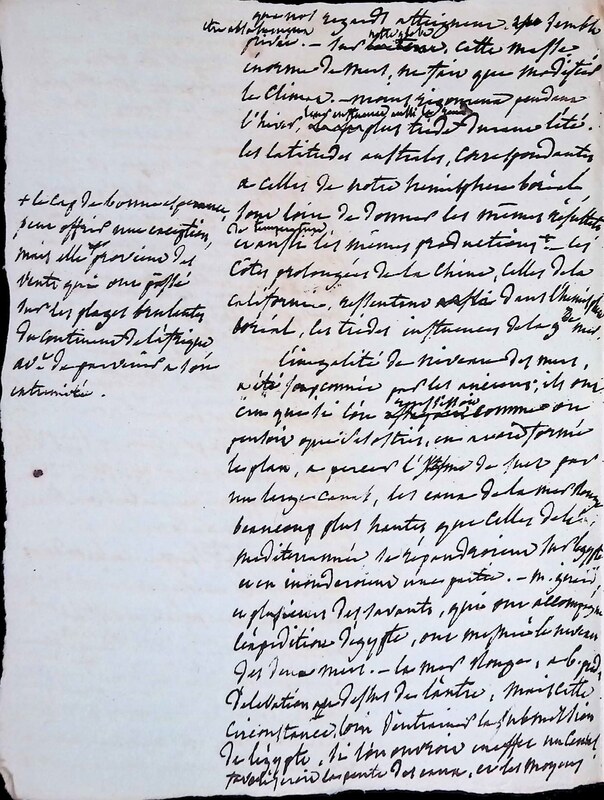 que nos regards atteignent. semble
privée. - Sur notre globe, cette masse
énorme de mers, ne fait que modifier
le climat. - moins rigoureux pendant
l'hiver, plus tiède durant l'été.
les latitudes australes, correspondantes
a celles de notre hemisphere boréal
sont loin de donner les mêmes résultats
de temperature
et aussi les mêmes productions + - les
côtes prolongées de la Chine, celles de la
californie, ressentent aussi dans l'hémisphère
boréal, les tiedes influences de la gde mer.
+ le Cap de bonne esperance
peut offrir une exception,
mais elle provient des
vents qui ont passé
sur les plages brulantes
du Continent de l'afrique
avt de parvenir a son
extremité.
l'inegalité de niveau des mers,
a été soupçonnée par les anciens; ils ont
cru que si l'on reussissoit comme on
pensoit que Sesostris, en avoit formé
le plan, a percer l'isthme de Suez par
un large canal, les eaux de la mer Rouge
beaucoup plus hautes que celles de la
mediterrannée se répandroient sur l'egypte
et en inonderoient une partie. - m. girard,
et plusieurs des savants, qui ont accompagné
l'expedition d'égypte, ont mesuré le niveau
des deux mers. - la mer Rouge, a pieds
d'elevation au dessus de l'autre, mais cette
circonstance, loin d'entrainer la submersion
de l'égypte, si l'on ouvroit en effet un Canal
la pente des eaux, et les moyens